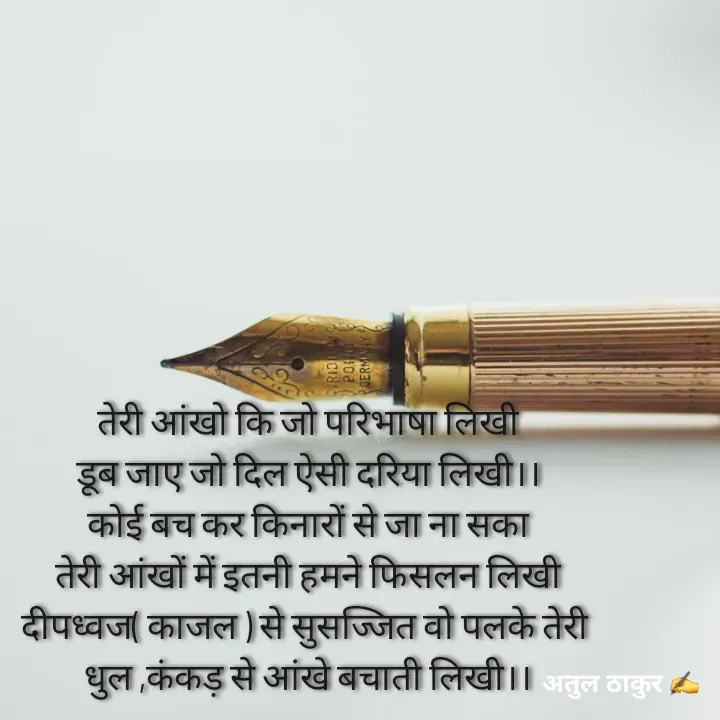 IRIDIUM
POINT
GERMANY
तेरी आंखो कि जो परिभाषा लिखी
डूब जाए जो दिल ऐसी दरिया लिखी।।
कोई बच कर किनारों से जा ना सका
तेरी आंखों में इतनी हमने फिसलन लिखी
दीपध्वज( काजल ) से सुसज्जित वो पलके तेरी
धुल ,कंकड़ से आंखे बचाती लिखी।। अतुल ठाकुर ✍️